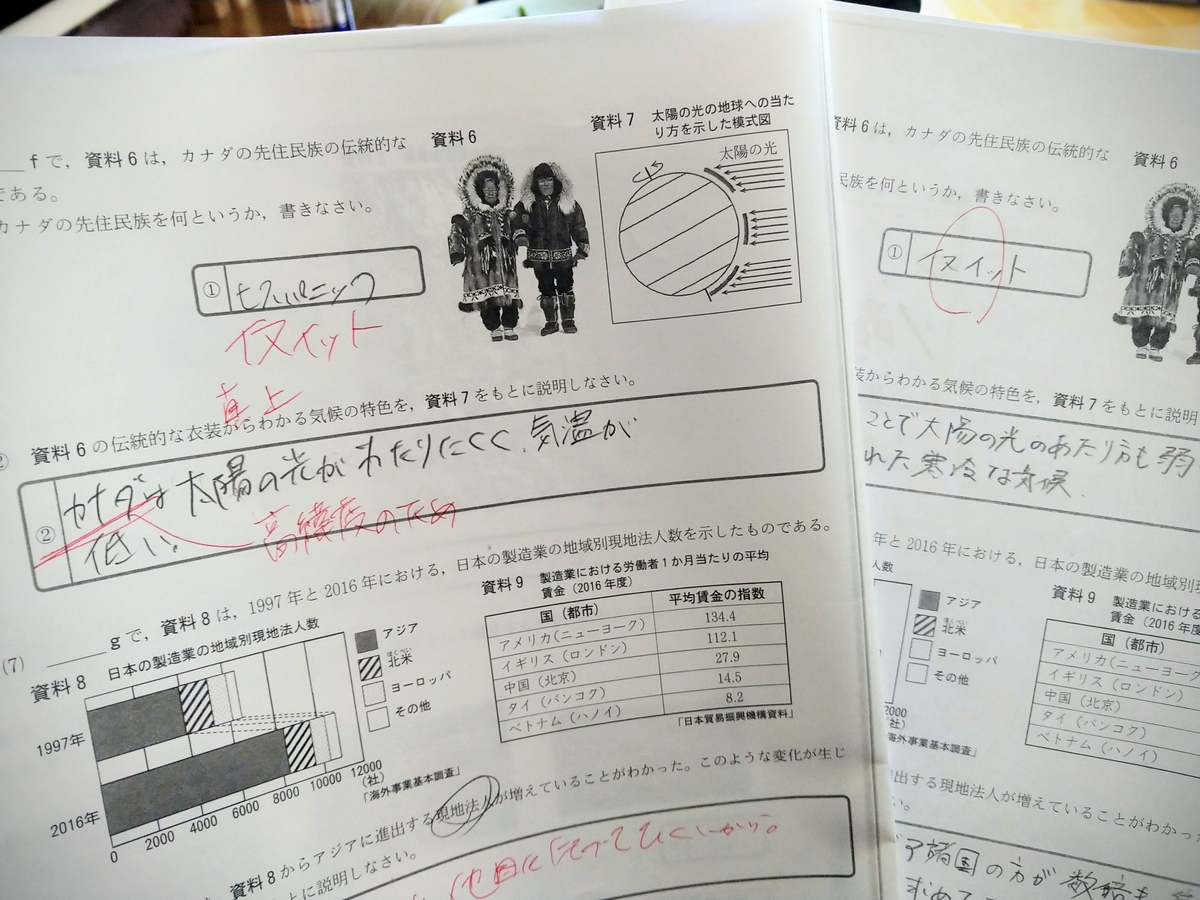 fで，資料6は，カナダの先住民族の伝統的な
である。
カナダの先住民族を何というか，書きなさい。
資料6
資料7 太陽の光の地球への当た
り方を示した模式図
太陽の光
① ヒスパニック
イヌイット
真上
資料6の伝統的な衣装からわかる気候の特色を，資料7をもとに説明しなさい。
② カナダは太陽の光があたりにくく、気温が
低い。
高緯度のため
(7) gで，資料8は，1997年と2016年における，日本の製造業の地域別現地法人数を示したものである。
資料8 日本の製造業の地域別現地法人数
アジア
北米
ヨーロッパ
その他
1997年
2016年
0 2000 4000 6000 8000 10000 12000
(社)
「海外事業基本調査」
資料9 製造業における労働者1か月当たりの平均
賃金（2016年度）
国（都市） 平均賃金の指数
アメリカ（ニューヨーク） 134.4
イギリス（ロンドン） 112.1
中国（北京） 27.9
タイ（バンコク） 14.5
ベトナム（ハノイ） 8.2
「日本貿易振興機構資料」
資料8からアジアに進出する現地法人が増えていることがわかった。このような変化が生じ
とに説明しなさい。
資料6は，カナダの先住民族の伝統的な
資料6
民族を何というか，書きなさい。
① イヌイット
装からわかる気候の特色を，資料7をもとに説明
ことで太陽の光のあたり方も弱
れた寒冷な気候．
年と2016年における，日本の製造業の地域別
人数
アジア
北米
ヨーロッパ
その他
2000
社)
海外事業基本調査」
資料9 製造業における
賃金（2016年度
国（都市）
アメリカ（ニューヨー
イギリス（ロンドン）
中国（北京）
タイ（バンコク）
ベトナム（ハノイ）
出する現地法人が増えていることがわかっ
い。
諸国の方が
求めて